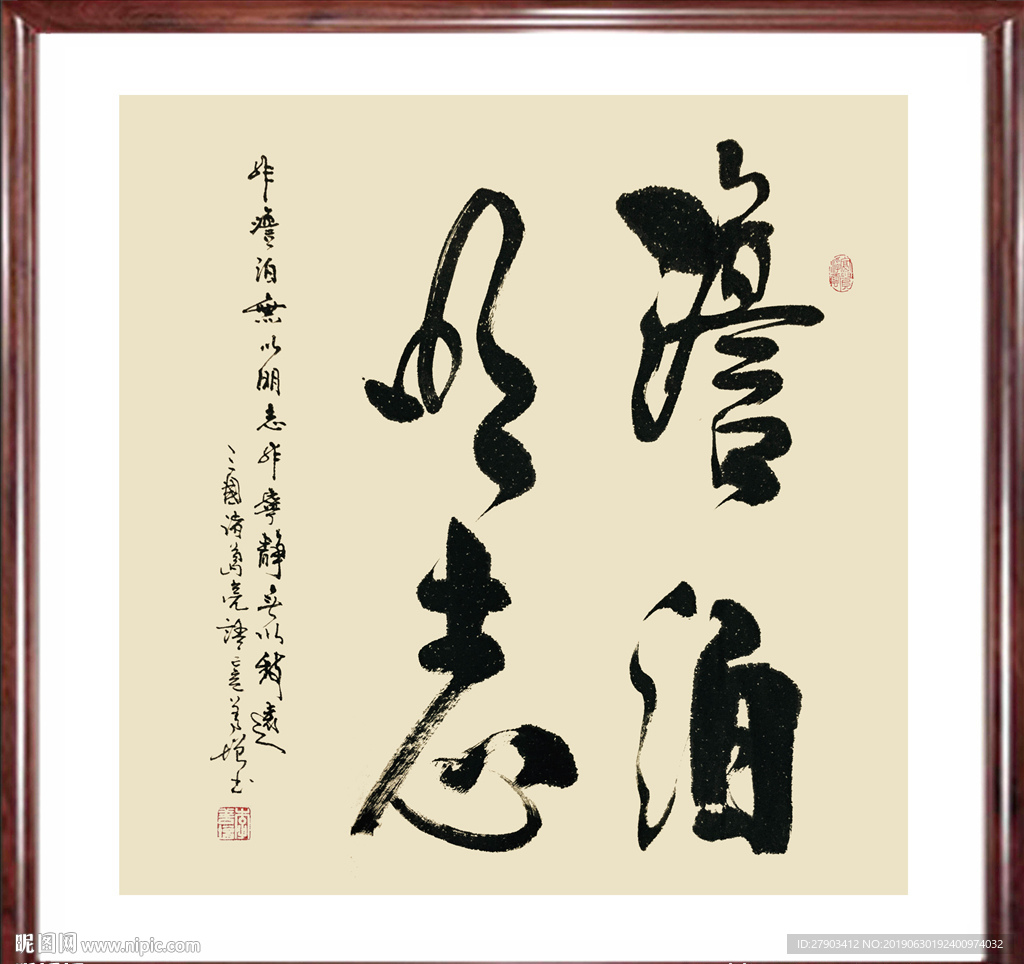 澹泊
明志
非澹泊無以明志非寧靜無以致遠
三國諸葛亮語意善增书
昵图网 www.nipic.com
ID:27903412 NO:20190630192400974032